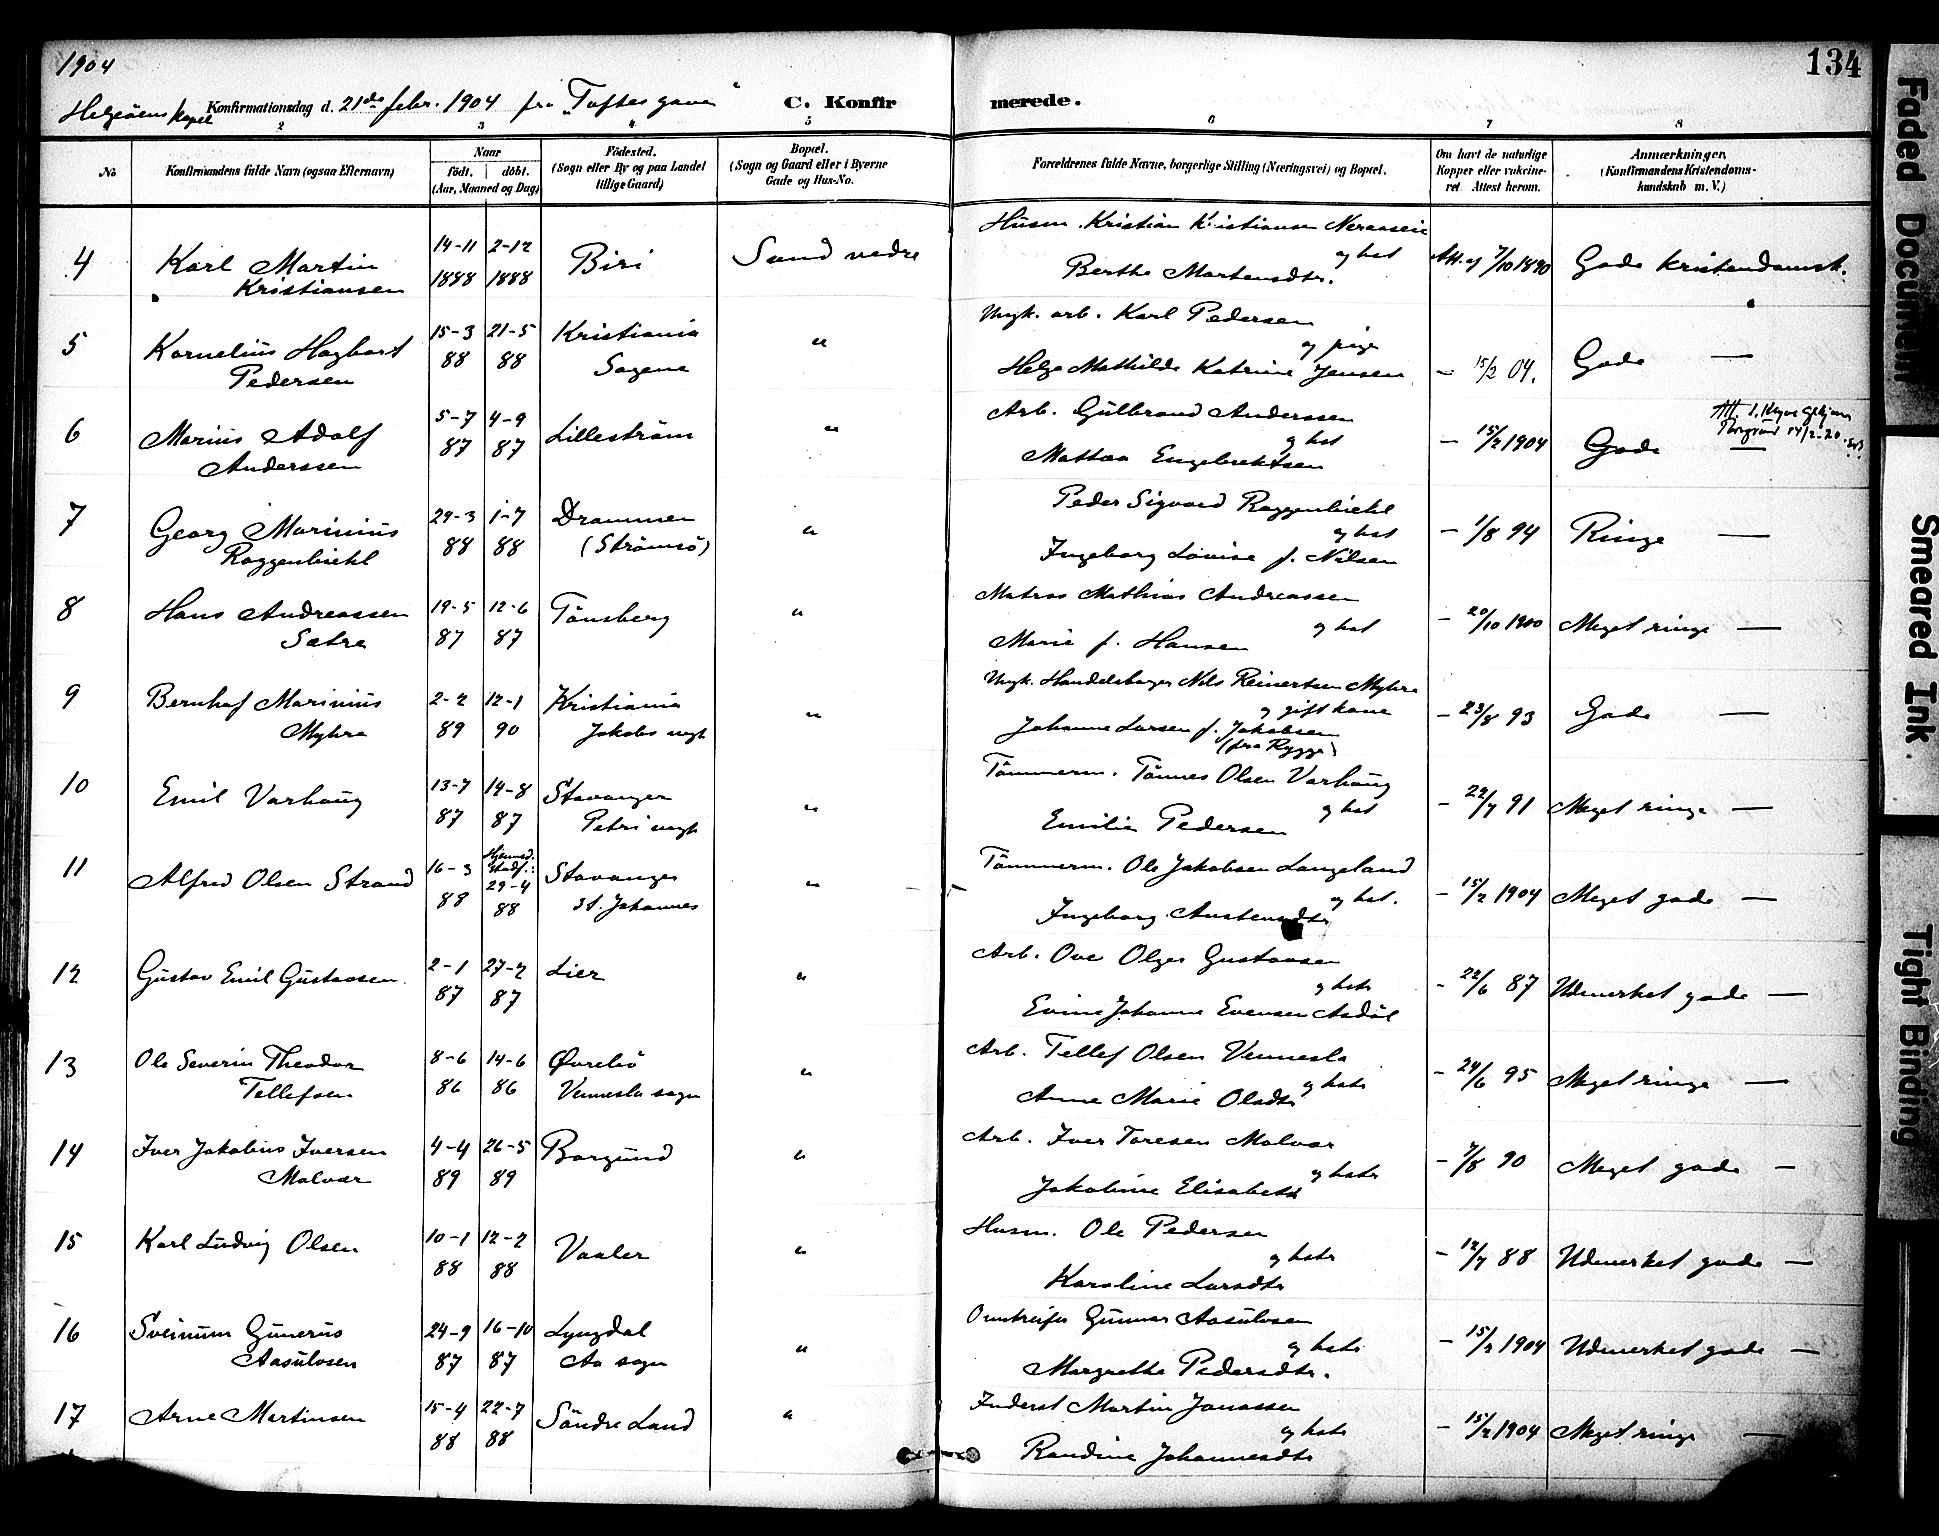 1904
134
Helgeöens kapel Konfirmationsdag d. 21de febr. 1904 fra "Toftes gave" C. Konfirmerede.
2 3 4 5 6 7 8
No Konfirmandens fulde Navn (ogsaa Efternavn) Naar födt. döbt. (Aar, Maaned og Dag) Födested. (Sogn eller By og paa Landet tillige Gaard) Bopæl. (Sogn og Gaard eller i Byerne Gade og Hus-No. Forældrenes fulde Navne, borgerlige Stilling (Næringsvei) og Bopæl. Om havt de naturlige Kopper eller vakcineret. Attest herom. Anmærkninger. (Konfirmandens Kristendomskundskab m. V.)
4 Karl Martin Kristiansen 14-11 1888 2-12 1888 Biri Sund nedre Husm. Kristian Kristiansen og hst Berthe Martensdtr. Att. af 7/10 1890 Gode kristendomsk.
5 Kornelius Hagbart Pedersen 15-3 88 21-5 88 Kristiania Sagene " Ungk. arb. Karl Pedersen og pige Helga Mathilde Katrine Jensen - 15/2 04. Gode —
6 Marius Adolf Anderssen 5-7 87 4-9 87 Lilleström " Arb. Gulbrand Anderssen og hst Mattea Engebrektsen - 15/2 1904 Gode —
7 Georg Marinius Roggenbiehl 29-3 88 1-7 88 Drammen (Strömsö) " Peder Sigvard Roggenbiehl og hst Ingeborg Lovise f. Nilsen - 1/8 94 Ringe —
8 Hans Andreassen Sætre 19-5 87 12-6 87 Tönsberg " Matros Mathias Andreassen og hst Marie f. Hansen - 20/10 1900 Meget ringe —
9 Bernhof Marinius Myhre 2-2 89 12-1 90 Kristiania Jakobs mgh " Ungk. Handelsborger Nils Reinertsen Myhre og gift kone Johanne Larsen f. Jakobsen (fra Rygge) - 23/8 93 Gode —
10 Emil Varhaug 13-7 87 14-8 87 Stavanger Petri mgh " Tömmerm. Tönnes Olsen Varhaug og hst Emilie Pedersen - 22/7 91 Meget ringe —
11 Alfred Olsen Strand 16-3 88 Hjemmed. Stadf.: 29-4 88 Stavanger St. Johannes " Tömmerm. Ole Jakobsen Langeland og hst. Ingeborg Austensdtr - 15/2 1904 Meget gode —
12 Gustav Emil Gustavsen 2-1 87 27-2 87 Lier " Arb. Ove Olger Gustavsen og hstr Evine Johanne Evensen Aadöl - 22/6 87 Udmerket gode —
13 Ole Severin Theodor Tellefsen 8-6 86 14-6 86 Øvrebö Vennesla sogn " Arb. Tellef Olsen Vennesla og hstr Anne Marie Olsdtr - 24/6 95 Meget ringe —
14 Iver Jakobus Iversen Molvær 4-4 89 26-5 89 Borgund " Arb. Iver Toresen Molvær og hstr Jakobine Elisabeth - 7/8 90 Meget gode —
15 Karl Ludvig Olsen 10-1 88 12-2 88 Vaaler " Husm. Ole Pedersen og hstr Karoline Larsdtr - 12/7 88 Udmerket gode —
16 Sveinum Gunerius Aasulvsen 24-9 87 16-10 87 Lyngdal Aa sogn " Omstreifer Gunnar Aasulvsen og hstr Margrethe Pedersdtr. - 15/2 1904 Udmerket gode —
17 Arne Martinsen 15-4 88 22-7 88 Söndre Land " Inderst Martin Jonassen og hstr Randine Johannesdtr - 15/2 1904 Meget ringe —
Faded Document
Smeared Ink.
Tight Binding